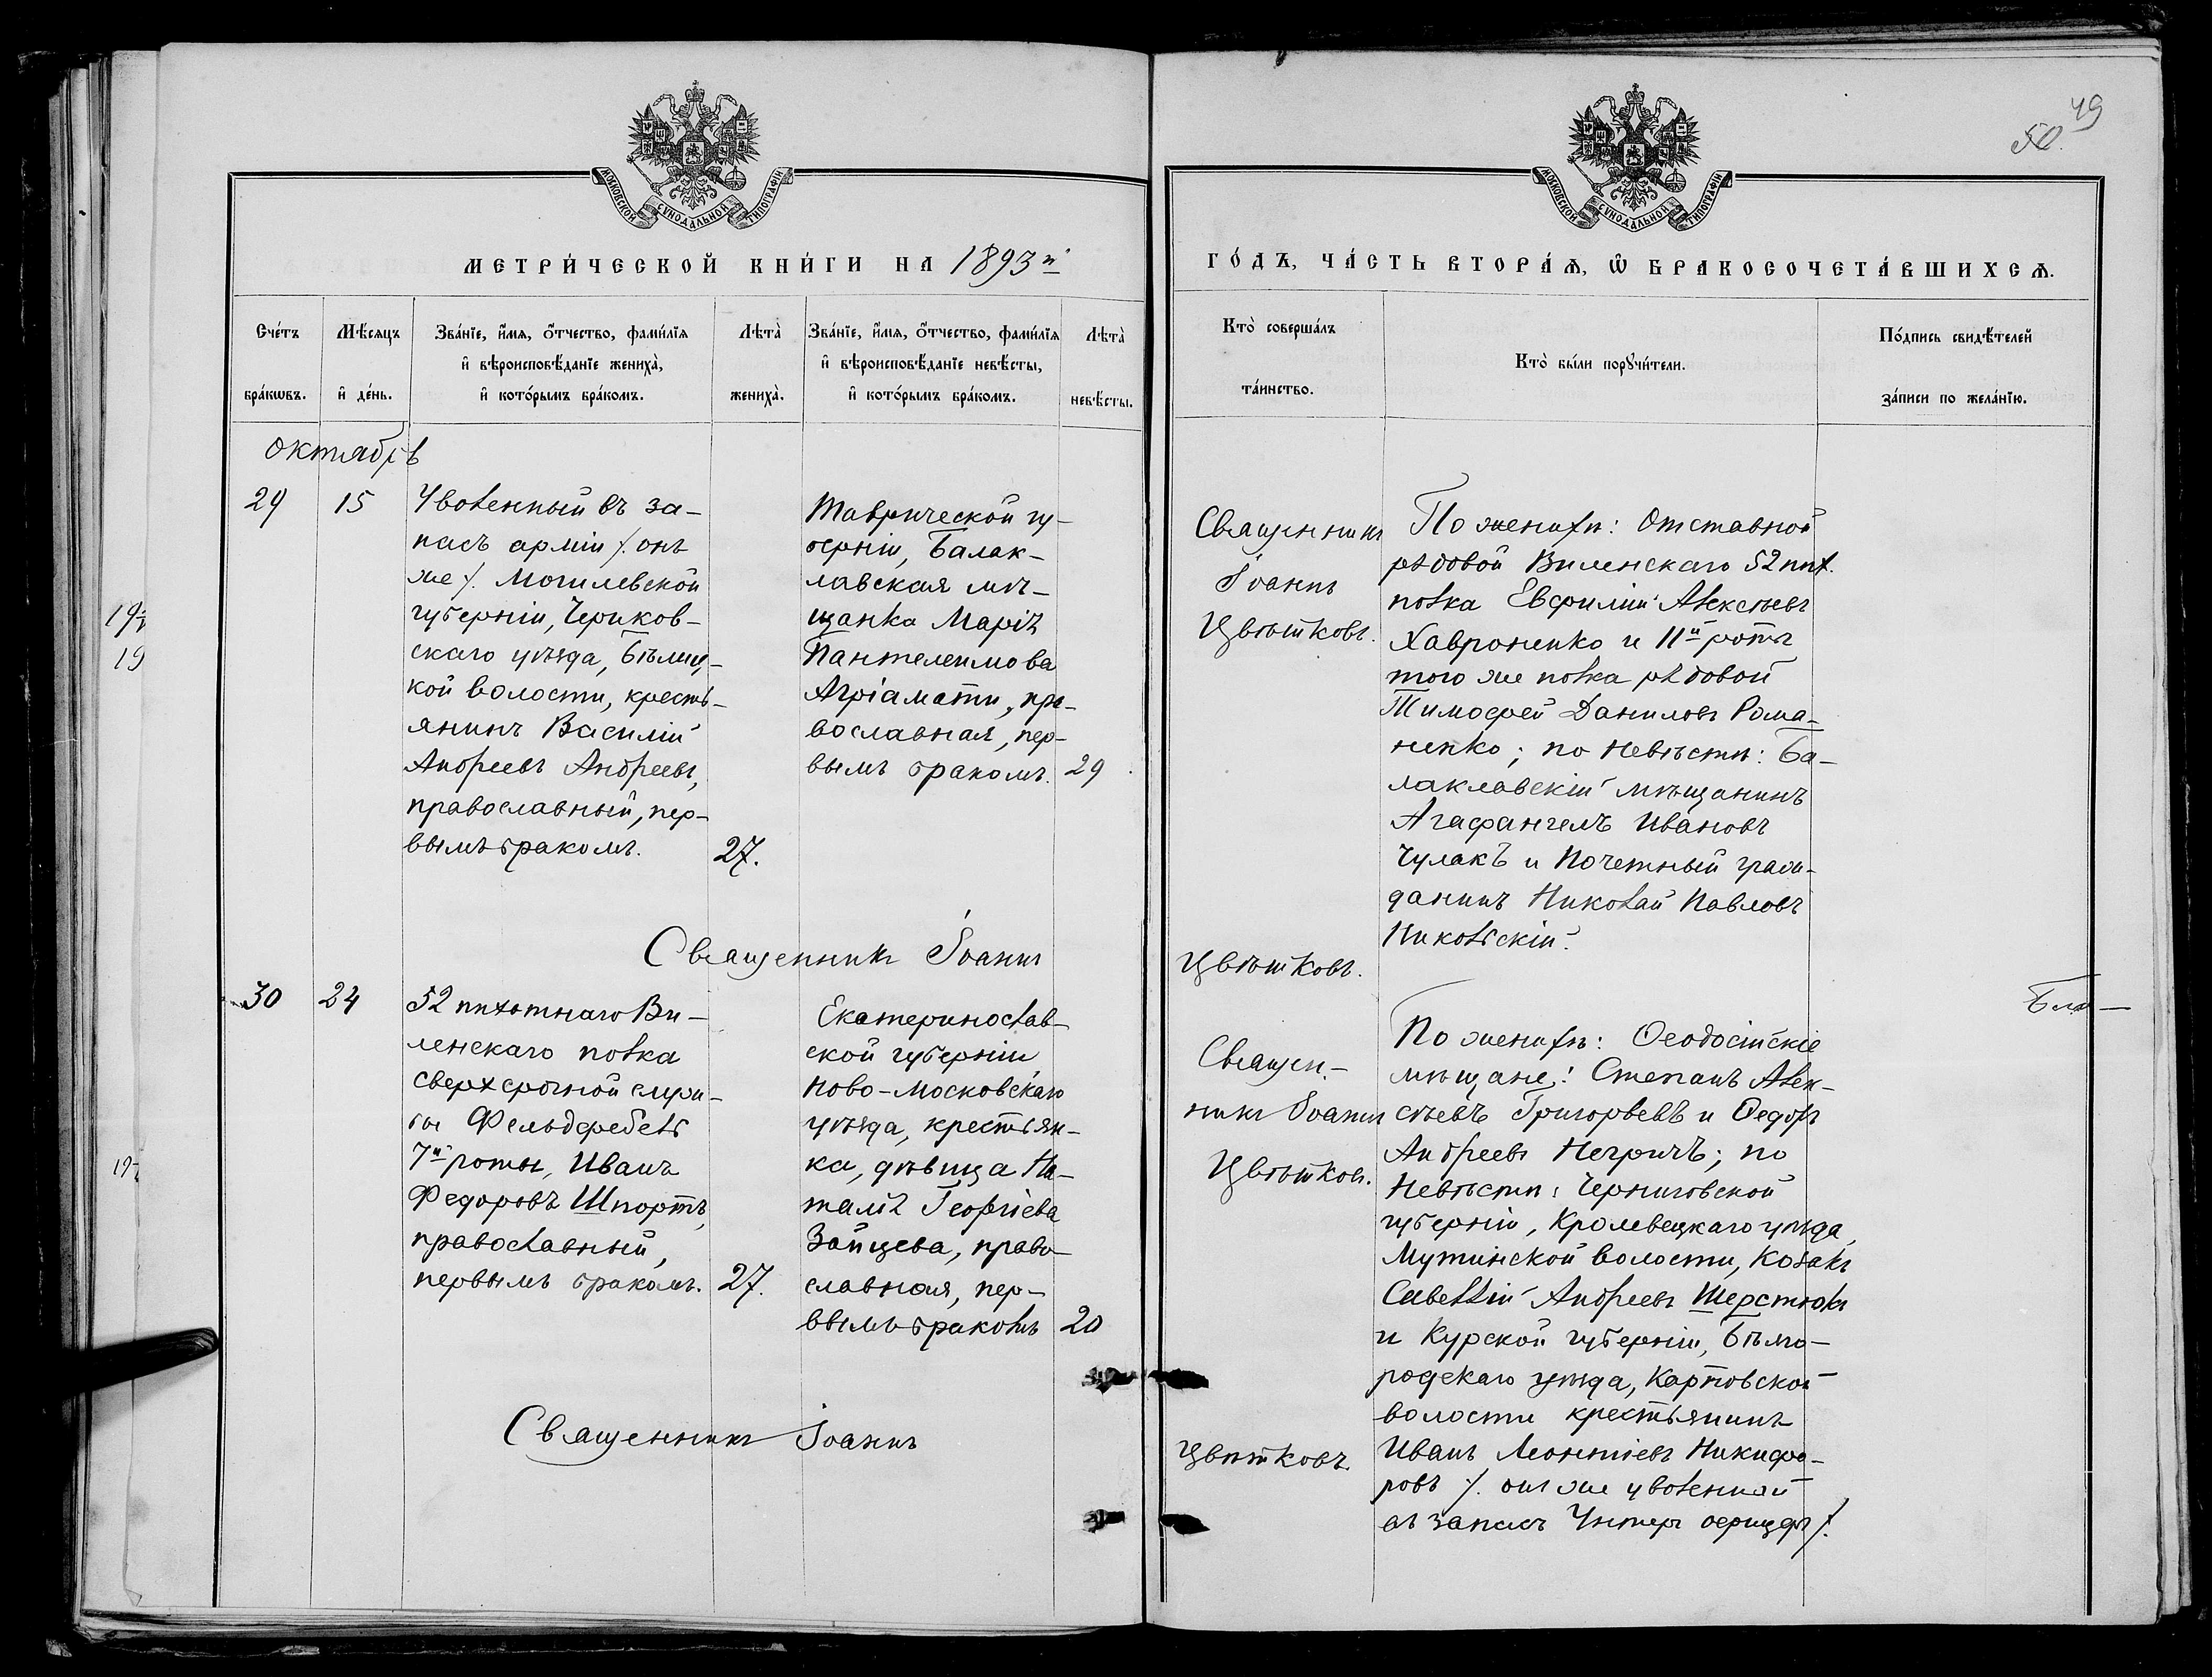 49
50.
МОСКОВСКОЙ СѴНОДАЛЬНОЙ ТИПОГРАФІИ
МОСКОВСКОЙ СѴНОДАЛЬНОЙ ТИПОГРАФІИ
МЕТРИ́ЧЕСКОЙ КНИ́ГИ НА 1893й
ГО́ДЪ, ЧА́СТЬ ВТОРА́Ѧ, Ѽ БРАКОСОЧЕТА́ВШИХСѦ.
Сче́тъ
бра́кѡвъ.
Мѣ́сяцъ
и҆ де́нь.
Зва́нїе, и҆́мя, ѻ҆́тчество, фами́лїя
и҆ вѣроисповѣ́данїе жениха̀,
и҆ кото́рымъ бра́комъ.
Лѣта̀
жениха̀.
Зва́нїе, и҆́мя, ѻ҆́тчество, фами́лїя
и҆ вѣроисповѣ́данїе невѣ́сты,
и҆ кото́рымъ бра́комъ.
Лѣта̀
невѣ́сты.
Кто̀ соверша́лъ
та́инство.
Кто̀ бы́ли порꙋчи́тели.
По́дпись свидѣ́телей
за́писи по жела́нїю.
октябрь
29
15
Уволенный въ за-
пасъ арміи /. онъ
же /. Могилевской
губерніи, Чериков-
скаго уѣзда, Бѣлиц-
кой волости, кресть-
янинъ Василій
Андреевъ Андреевъ,
православный, пер-
вымъ бракомъ.
27.
Таврической гу-
берніи, Балак-
лавская мѣ-
щанка Марія
Пантелеимова
Агріамати, пра-
вославная, пер-
вымъ бракомъ.
29
Священникъ
Іоаннъ
Цвѣтковъ.
По женихѣ: Отставной
рядовой Виленскаго 52 пѣх.
полка Евфимій Алексѣевъ
Хавроненко и 11й роты
того же полка рядовой
Тимофей Даниловъ Рома-
ненко; по невѣстѣ: Ба-
лаклавскій мѣщанинъ
Агафангелъ Ивановъ
Чулакъ и Почетный граж-
данинъ Николай Павловъ
Никольскій.
Священникъ Іоаннъ
Цвѣтковъ.
30
24
52 пѣхотнаго Ви-
ленскаго полка
сверхсрочной служ-
бы Фельдфебель
7й роты, Иванъ
Федоровъ Шпортъ,
православный,
первымъ бракомъ.
27.
Екатеринослав-
ской губерніи,
Ново-Московскаго
уѣзда, крестьян-
ка, дѣвица На-
талія Георгіева
Зайцева, право-
славная, пер-
вымъ бракомъ
20
Священ-
никъ Іоаннъ
Цвѣтковъ.
По женихѣ: Ѳеодосійскіе
мѣщане: Степанъ Алек-
сѣевъ Григорьевъ и Ѳедоръ
Андреевъ Негричъ; по
невѣстѣ: Черниговской
губерніи, Кролевецкаго уѣзда,
Мутинской волости, Козакъ
Савелій Андреевъ Шерстюкъ
и Курской губерніи, Бѣлго-
родскаго уѣзда, Карповской
волости крестьянинъ
Иванъ Леонтіевъ Никифо-
ровъ /. онъ же уволенный
въ запасъ Унтеръ офицеръ /.
Священникъ Іоаннъ
Цвѣтковъ.
19